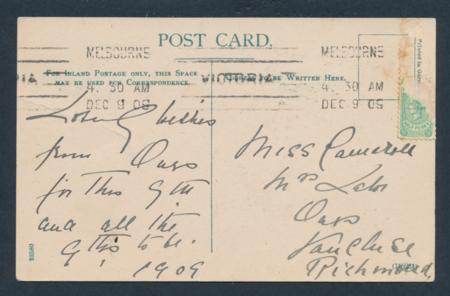 POST CARD.
MELBOURNE
4. 30 AM
DEC 9 09
VICTORIA
MELBOURNE
4. 30 AM
DEC 9 09
FOR INLAND POSTAGE ONLY, THIS SPACE
MAY BE USED FOR CORRESPONDENCE.
BE WRITTEN HERE.
Loving wishes
from Ours
for this 9th
and all the
9ths to be.
1909
Miss Cameron
Mrs
Ours
Vaucluse
Richmond